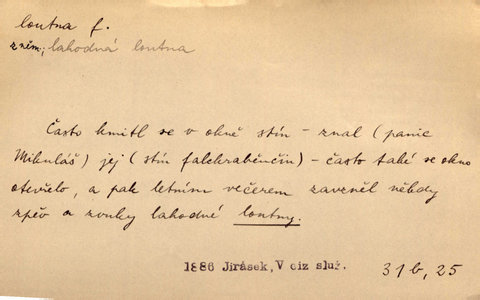 loutna f.
z něm; lahodná loutna
Často kmitl se v okně stín – znal (panic
Mikuláš) jej (stín falckraběnčin) – často také se okno
otevřelo, a pak letním večerem zazněl někdy
zpěv a zvuky lahodné loutny.
1886 Jirásek, V ciz služ. 31b, 25